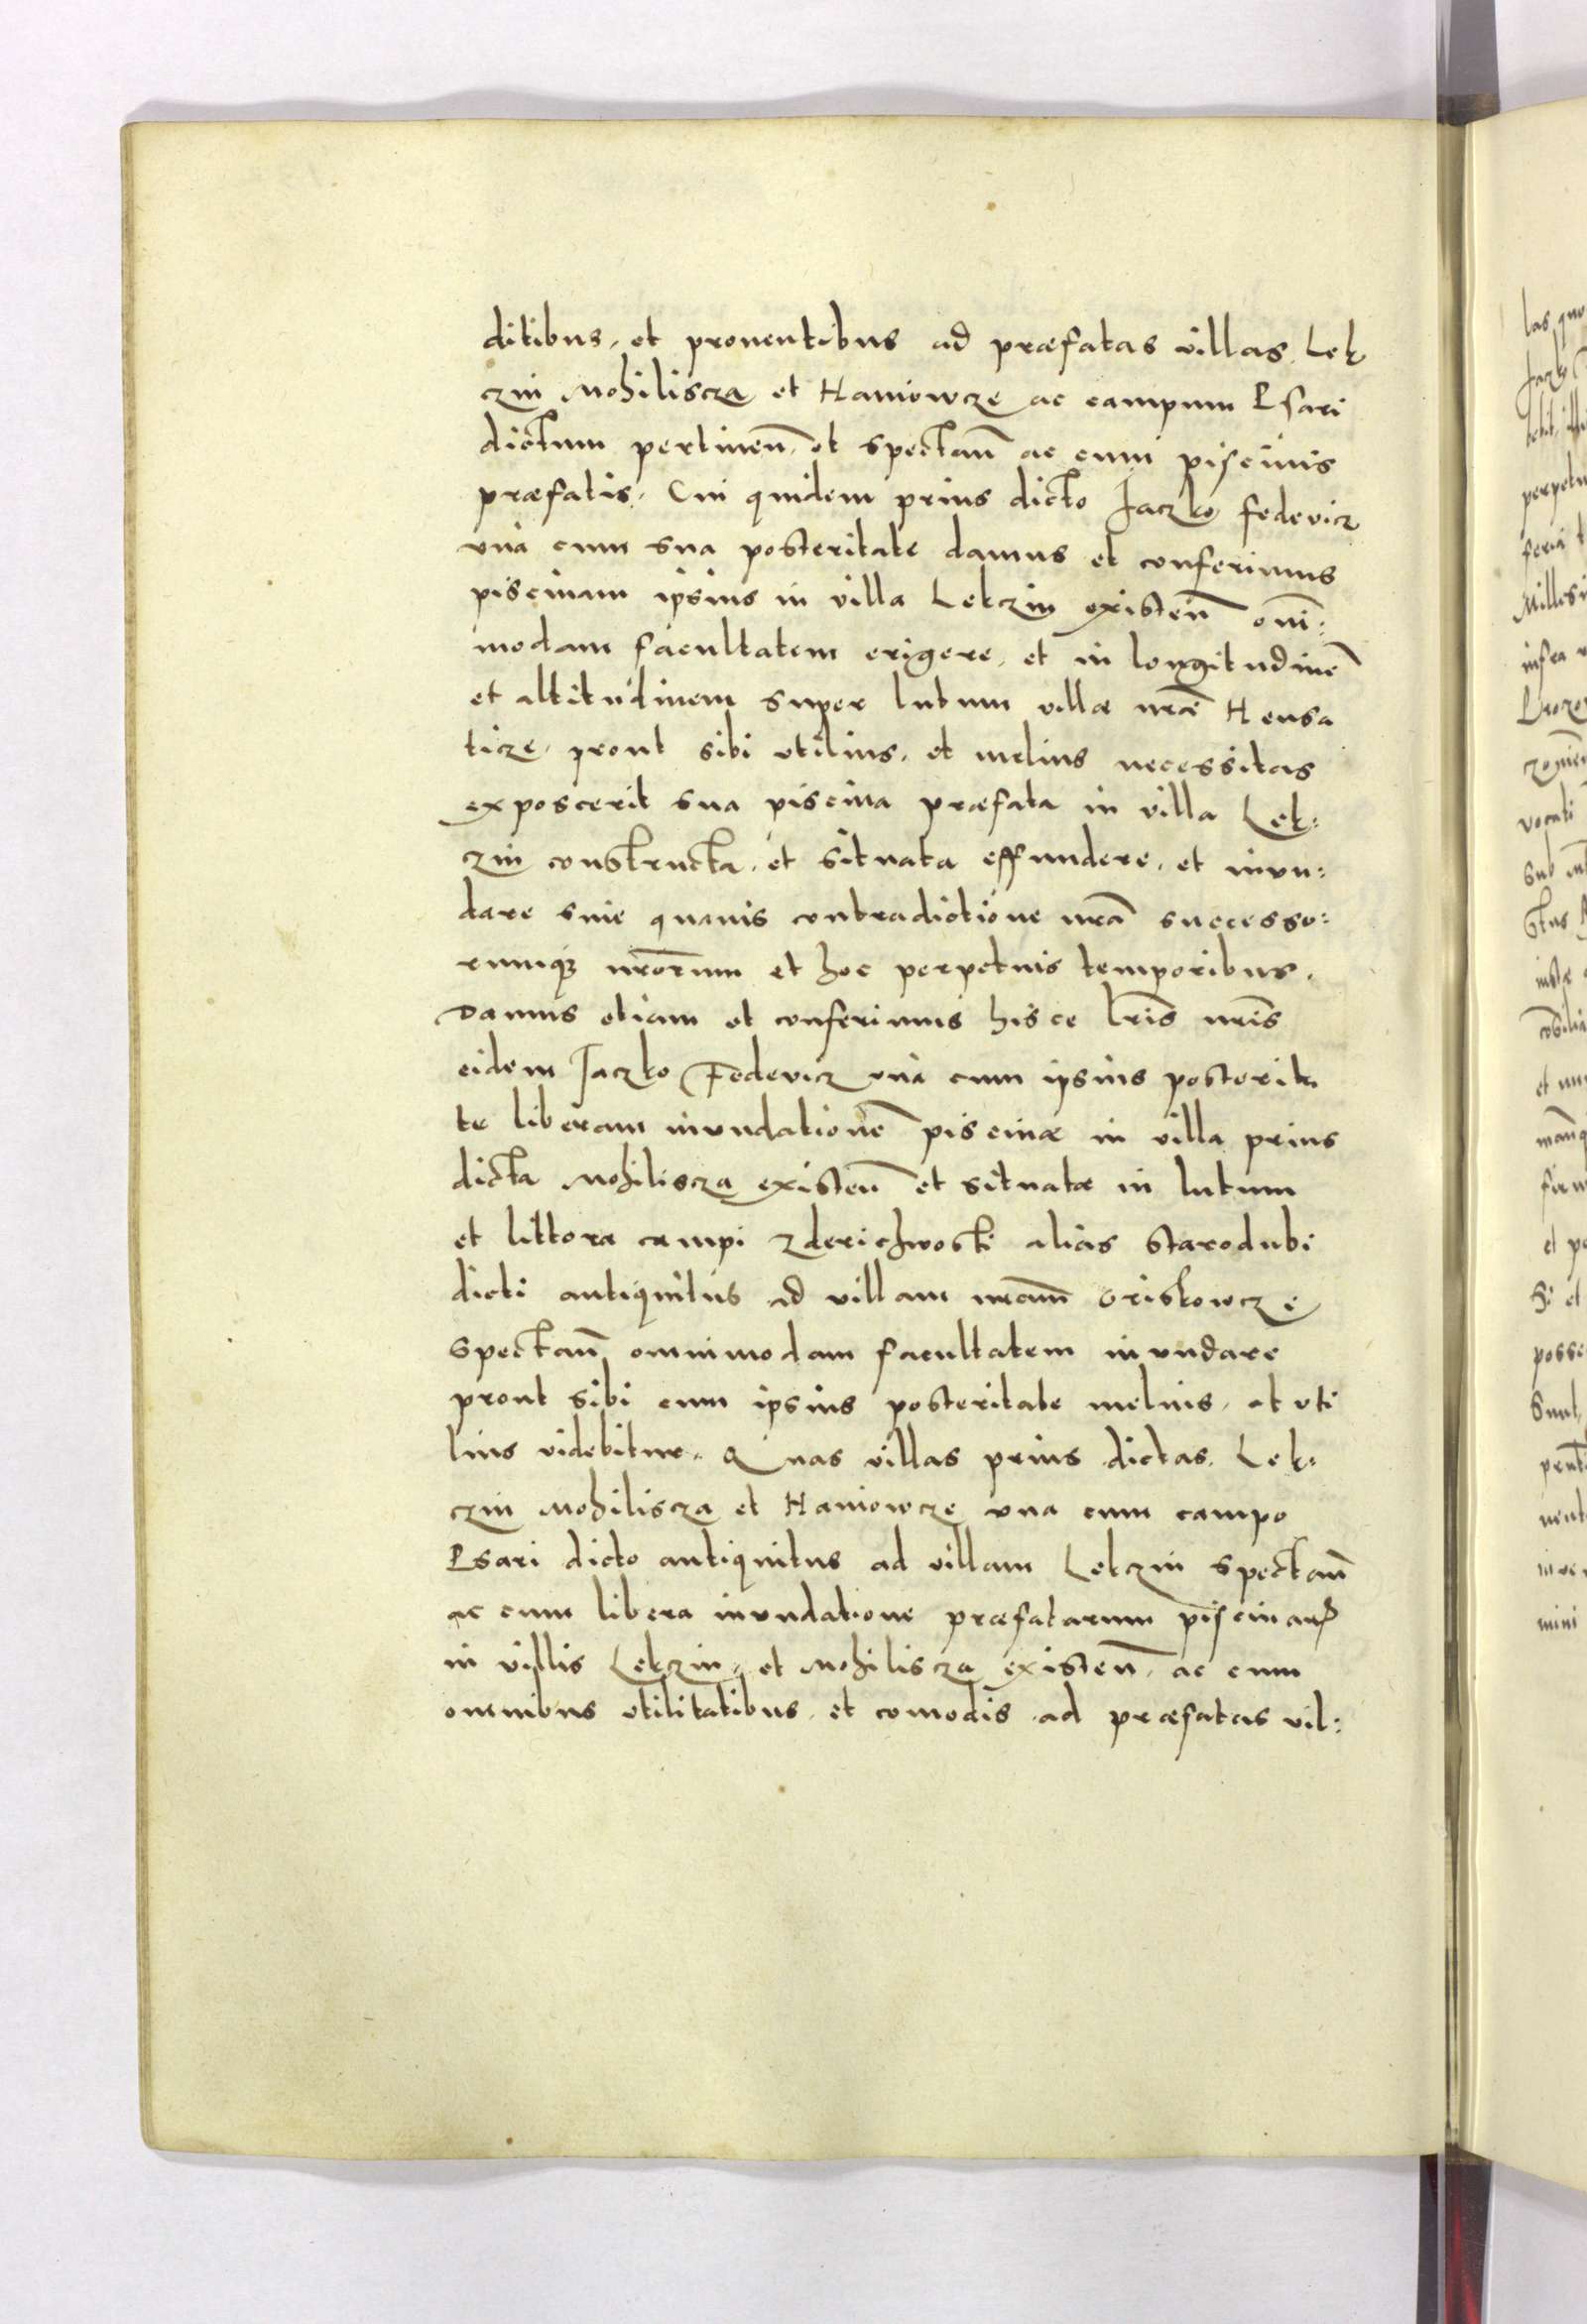 ditibus, et prouentibus ad præfatas villas, Lek
czin Mohiliscza et Haniowcze ac campum Psari
dictum pertineñ, et spectañ ac cum piscinis
præfatis. Cui quidem prius dicto Jaczko Fedevicz
vna cum sua posteritate damus et conferimus
piscinam ipsius in villa Lekczin existeñ om̄i:
modam facultatem erigere, et in longitudinē
et altitudinem super lutum villæ nrāe Hensa
ticze, prout sibi vtilius, et melius necessitas
exposcerit sua piscina præfata in villa Lek:
czin constructa, et situata effundere, et inun:
dare sine quauis contradictione nrā successo:
rumqȝ nrōrum et hoc perpetuis temporibus.
Damus etiam et conferimus hisce lrīs nrīs
eidem Jaczko Fedevicz vna cum ipsius posterita
te liberam inundationē piscinæ in villa prius
dicta Mohiliscza existeñ et situatæ in lutum
et littora campi Zderichwosti alias Starodubi
dicti antiquitus ad villam nrām Oriskowcze
spectañ omnimodam facultatem inundare
prout sibi cum ipsius posteritate melius, et vti
lius videbitur. Quas villas prius dictas, Lek:
czin Mohiliscza et Haniowcze vna cum campo
Psari dicto antiquitus ad villam Lekczin spectañ
ac cum libera inundatione præfatarum piscinarꝝ
in villis Lekczin, et Mohiliscza existeñ, ac cum
omnibus vtilitatibus, et comodis ad præfatas vil: